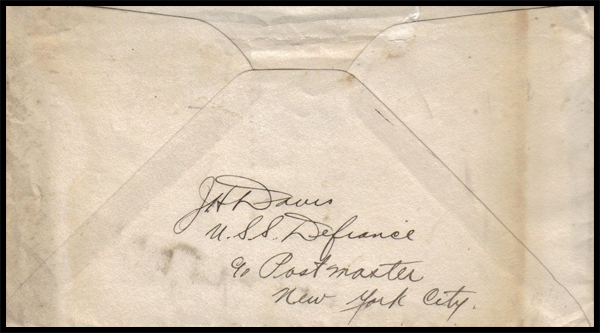 JH Davis
U.S.S. Defiance
c/o Postmaster
New York City.